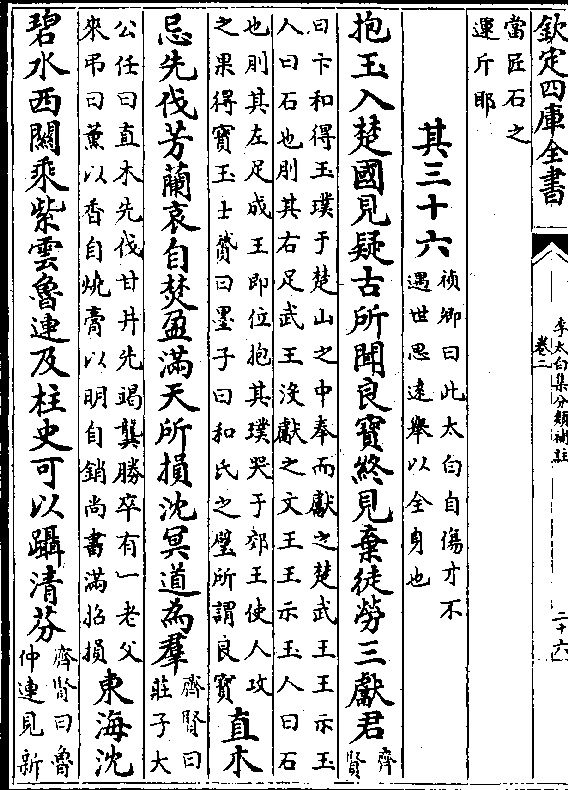 欽定四庫全書
李太白集分類補註
卷二
二十六
當匠石之
運斤耶
其三十六
禎卿曰此太白自傷才不
遇世思遠舉以全身也
抱玉入楚國見疑古所聞良寶終見棄徒勞三獻君
齊
賢
曰卞和得玉璞于楚山之中奉而獻之楚武王王示玉
人曰石也刖其右足武王沒獻之文王王示玉人曰石
也刖其左足成王即位抱其璞哭于郊王使人攻
之果得寶玉士贇曰墨子曰和氏之璧所謂良寶
直木
忌先伐芳蘭哀自焚盈滿天所損沈冥道為羣
齊賢曰
莊子大
公任曰直木先伐甘井先竭龔勝卒有一老父
來弔曰薰以香自燒膏以明自銷尚書滿招損
東海沈
碧水西關乘紫雲魯連及柱史可以躡清芬
齊賢曰魯
仲連見新